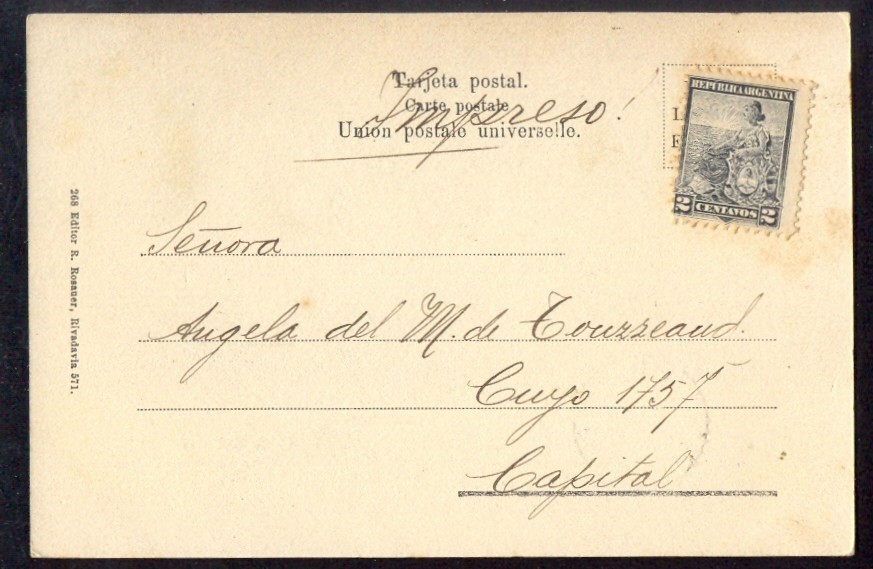 Tarjeta postal.
Carte postale
Impreso!
Union postale universelle.
REPUBLICA ARGENTINA
2 CENTAVOS 2
268 Editor R. Rosauer, Rivadavia 571.
Señora
Angela del M. de Touzzeaud.
Cuyo 1757
Capital